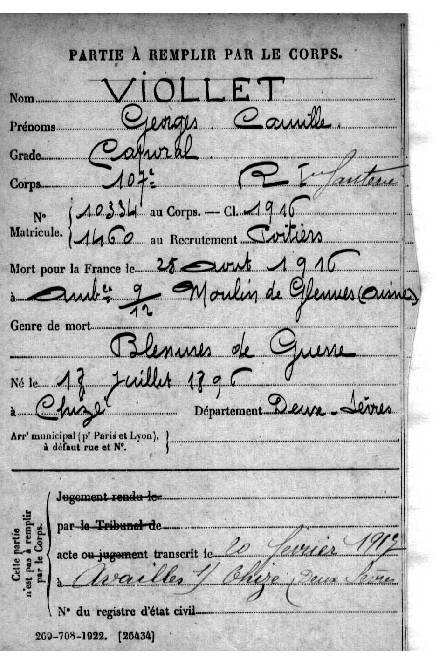 PARTIE À REMPLIR PAR LE CORPS.
Nom VIOLLET
Prénoms Georges Camille.
Grade Caporal.
Corps 107e R. Infanterie
N° Matricule. { 10334 au Corps. — Cl. 1916
1460 au Recrutement Poitiers
Mort pour la France le 28 Aout 1916
à Ambce 9/12 Moulin de Glennes (Aisne)
Genre de mort
Blessures de Guerre
Né le 17 Juillet 1896
à Chizé Département Deux-Sèvres
Arrt municipal (pr Paris et Lyon), à défaut rue et N°. }
Cette partie n'est pas à remplir par le Corps.
Jugement rendu le
par le Tribunal de
acte ou jugement transcrit le 20 février 1917
à Availles s/ Chizé (Deux Sèvres
N° du registre d'état civil
269-708-1922. [26434]